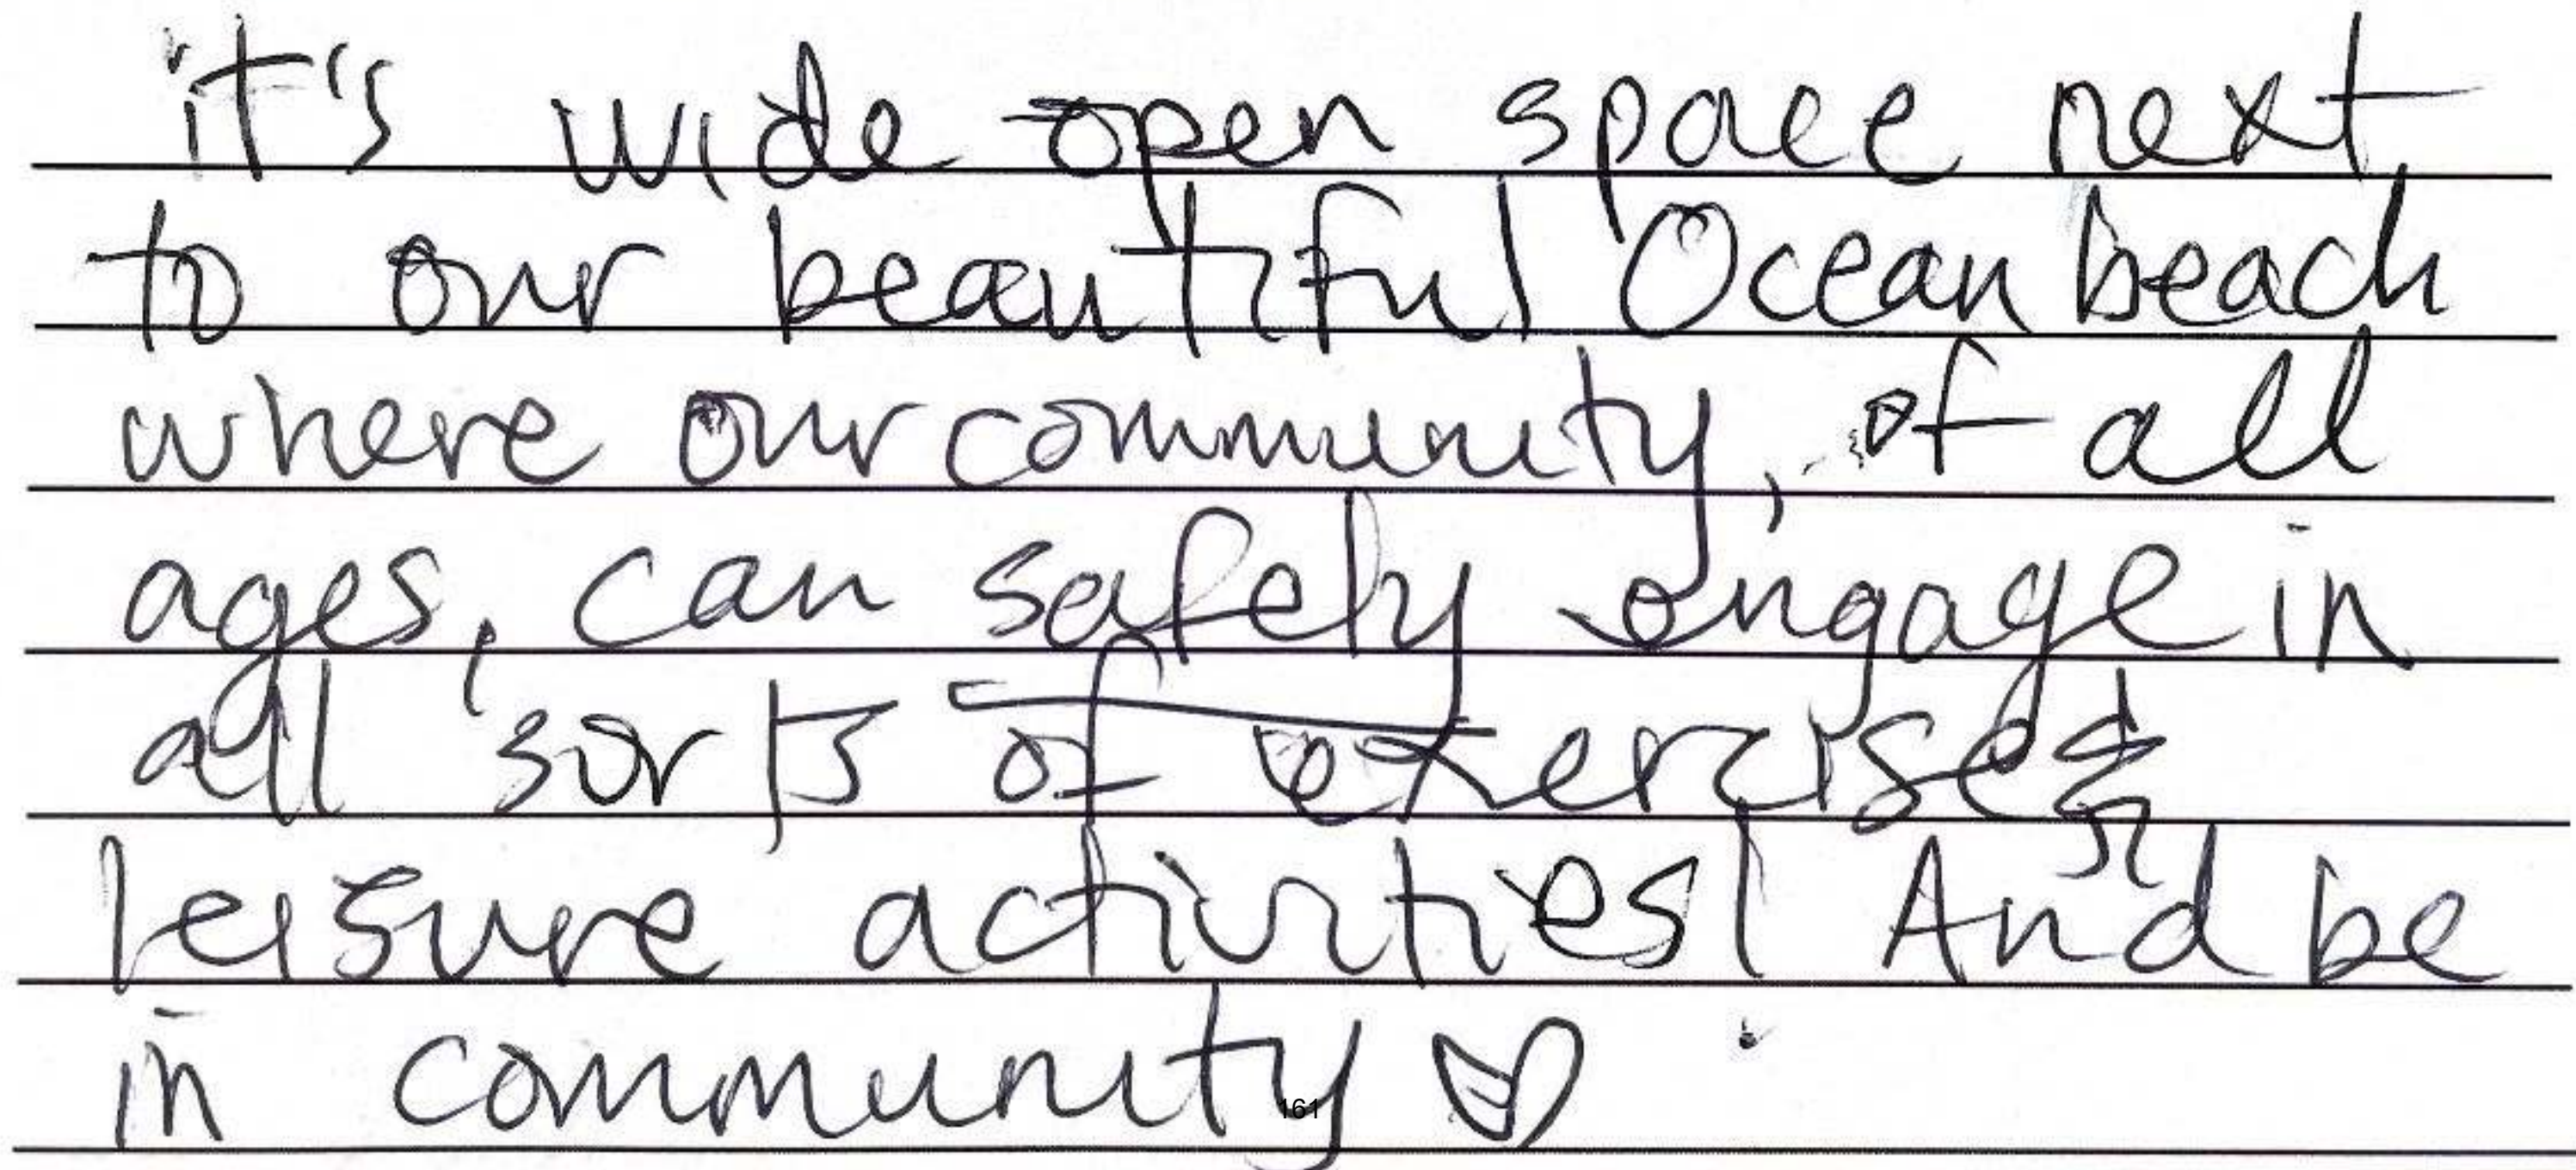 it's wide open space next
to our beautiful Ocean beach
where our community, of all
ages, can safely engage in
all sorts of exercise &
leisure activities! And be
in community ♡
161